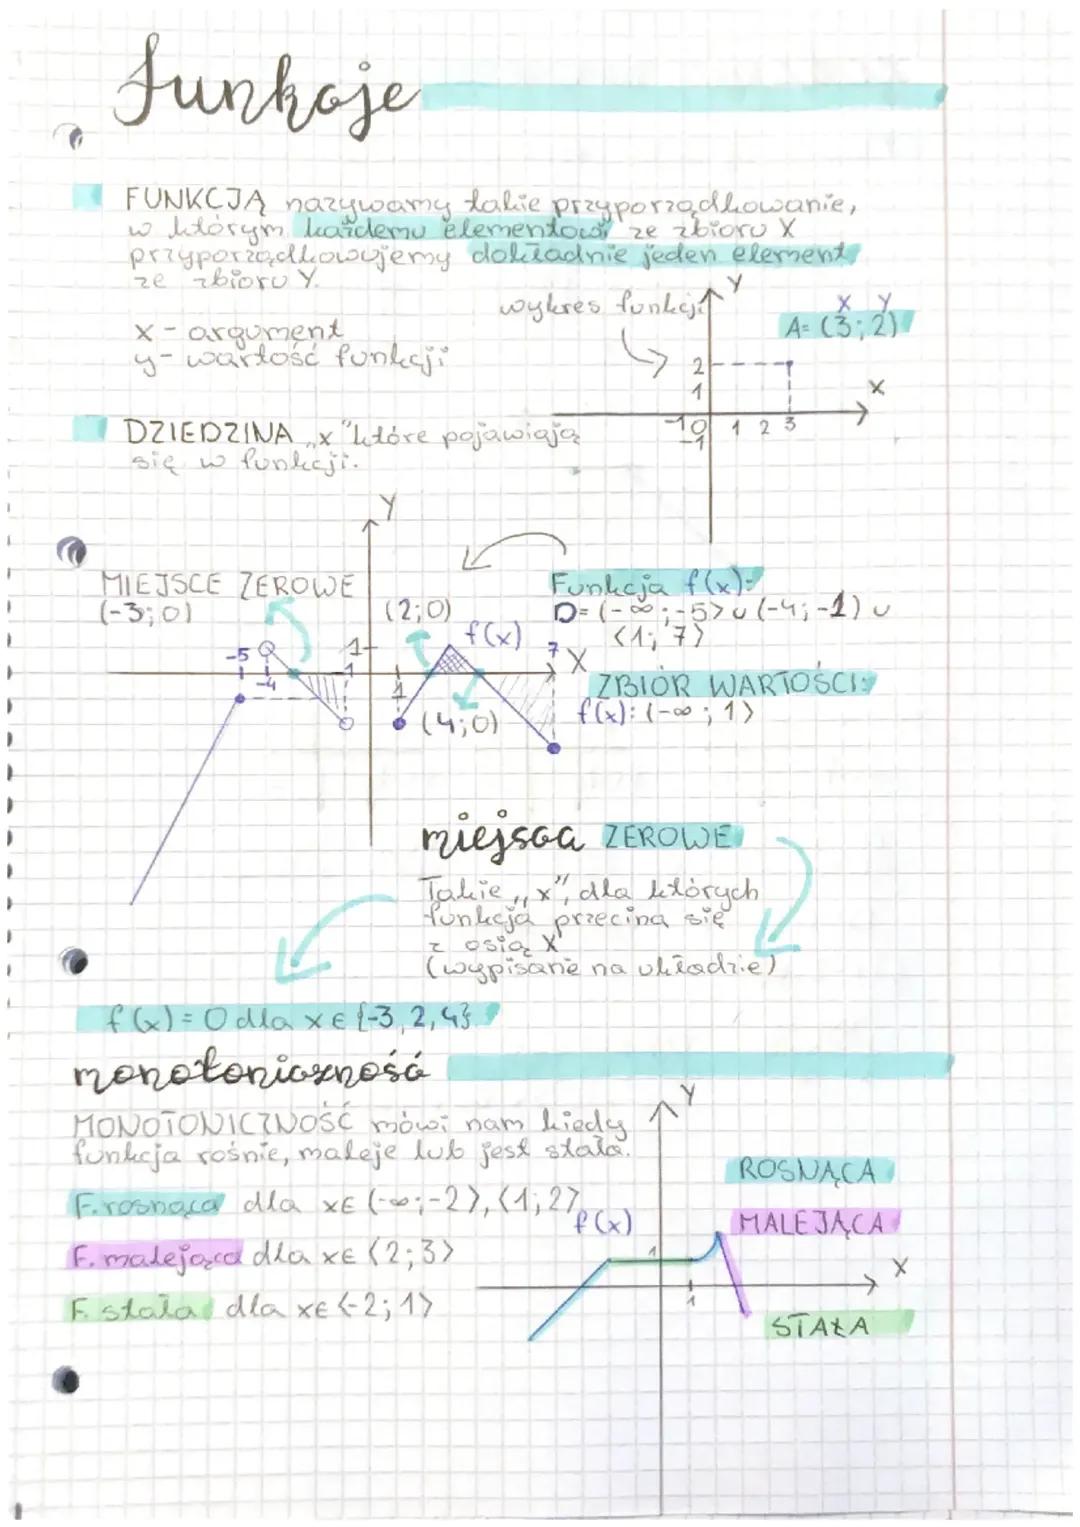 Funkcje
FUNKCJĄ nazywamy takie przyporządkowanie,
w którym każdemu elementowi ze zbioru X
przyporządkowujemy dokładnie jeden element
ze zbioru Y.
x - argument
y - wartość funkcji
wykres funkcji
Y
X Y
A = (3; 2)
2
1
X
-1 0 1 2 3
-1
DZIEDZINA „x" które pojawiają
się w funkcji.
Y
MIEJSCE ZEROWE
(-3; 0)
(2; 0)
f(x)
Funkcja f(x):
D = (-∞; -5> ∪ (-4; -1) ∪
<1; 7>
-5
-4
1
-1
1
7
X
(4; 0)
ZBIÓR WARTOŚCI:
f(x): (-∞; 1>
miejsca ZEROWE
Takie „x", dla których
funkcja przecina się
z osią X
(wypisanie na układzie)
f(x) = 0 dla x ∈ {-3, 2, 4}
monotoniczność
MONOTONICZNOŚĆ mówi nam kiedy
funkcja rośnie, maleje lub jest stała.
F. rosnąca dla x ∈ (-∞; -2>, <1; 2>
F. malejąca dla x ∈ <2; 3>
F. stała dla x ∈ <-2; 1>
Y
f(x)
1
1
X
ROSNĄCA
MALEJĄCA
STAŁA